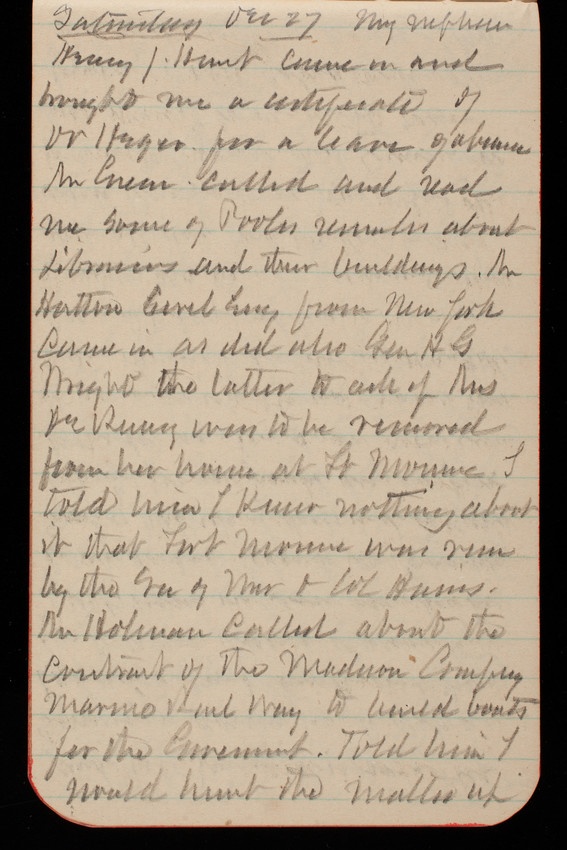 Saturday Dec 27 My nephew
Henry J. Hunt came in and
brought me a certificate of
Dr Heger for a leave of absence
Mr Green called and read
me some of Pooles remarks about
Libraries and their buildings. Mr
Hatton Civil Eng from New York
Came in as did also Gen H G
Wright the latter to ask if Mrs
was to be removed
from her home at Ft Monroe I
told him I Knew nothing about
it that Fort Monroe was run
by the Sec of War & Col
Mr Holman Called about the
Contract of the Madison Company
Marine Rail Way to build boats
for the Goverment. Told him I
would hunt the matter up